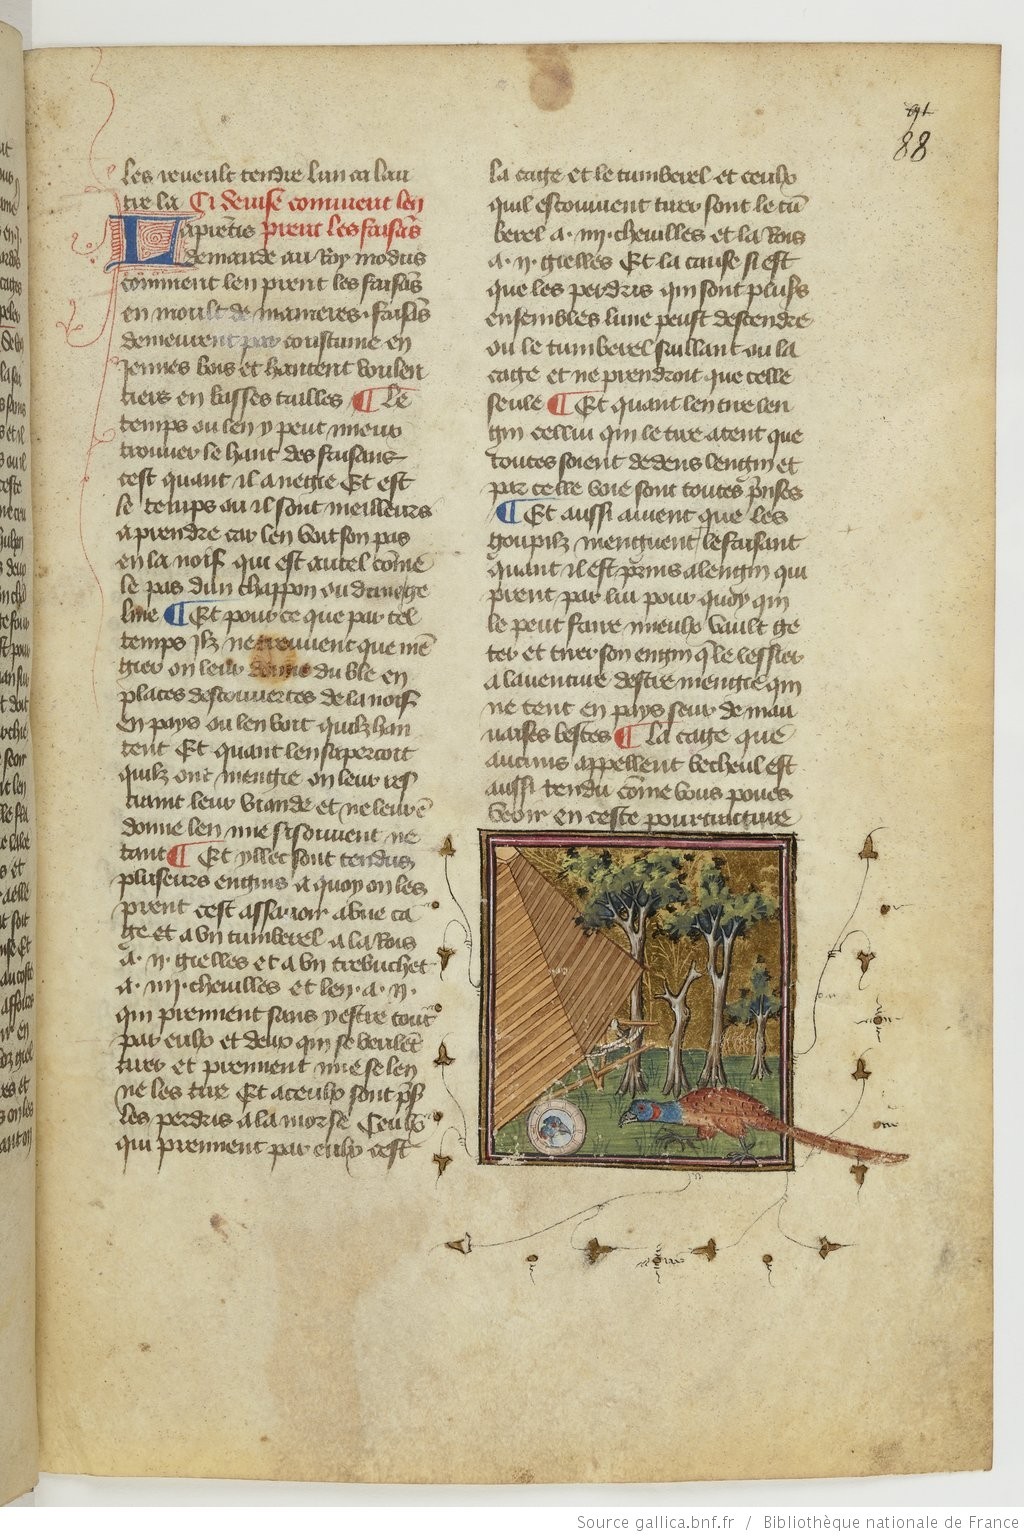 91
88
les reveult tendre lun ca lau
tre la Ci devise comment len
Laprētis prent les faisās
demande au Roy modus
comment len prent les faisās
en moult de manieres. faisās
demeurent par coustume en
Jennes bois et hantent voulen
tiers en basses tailles ¶ Le
temps ou len y peut mieux
trouver le hant des faisans
cest quant il a negie Et est
le temps ou il sont meilleurs
a prendre car len voit son pas
en la noif qui est autel cōme
le pas dun chappon ou dune ge
line ¶ Et pour ce que par tel
temps Ilz ne treuvent que mē
gier on leur donne du ble en
places descouvertes de la noif
en pays ou len voit quilz han
tent Et quant len sapercoit
quilz ont mengie on leur res
traint leur viande et ne leur ē
donne len mie si souvent ne
tant ¶ Et yllec sont tendus
plusieurs engins a quoy on les
prent cest assavoir a une ca
ge et a un tumberel a la Rois
a .ij. gielles et a un trebuchet
a .iiij. chevilles et len a .ij.
qui prennent sans y estre tout
par eulx et deux qui se veulēt
tirer et prennent mie se len
ne les tire Et a ceulx sont p̄s
les perdris a la morse Ceulx
qui prennent par eulx cest
la cage et le tumberel et ceulx
quil escouvient tirer sont le tū
berel a .iiij. chevilles et la Rois
a .ij. gielles Et la cause si est
que les perdris qui sont plus̄s
ensembles lune peust descendre
ou le tumberel saillant ou la
cage et ne prendroit que celle
seule ¶ Et quant len tire len
gin cellui qui le tire atent que
toutes soient dedens lengin et
par celle voie sont toutes p̄nses
¶ Et aussi avient que les
goupilz menguent le faisant
quant il est prins a lengin qui
prent par lui pour quoy qui
le peut faire mieulx vault ge
ter et tirer son engin q̄ le lessier
a laventure destre mengie qui
ne tent en pays seur de mau
vaises bestes ¶ La cage que
aucuns appellent becheul est
aussi tendu cōme vous poves
veoir en ceste pourtraiture
Source gallica.bnf.fr / Bibliothèque nationale de France